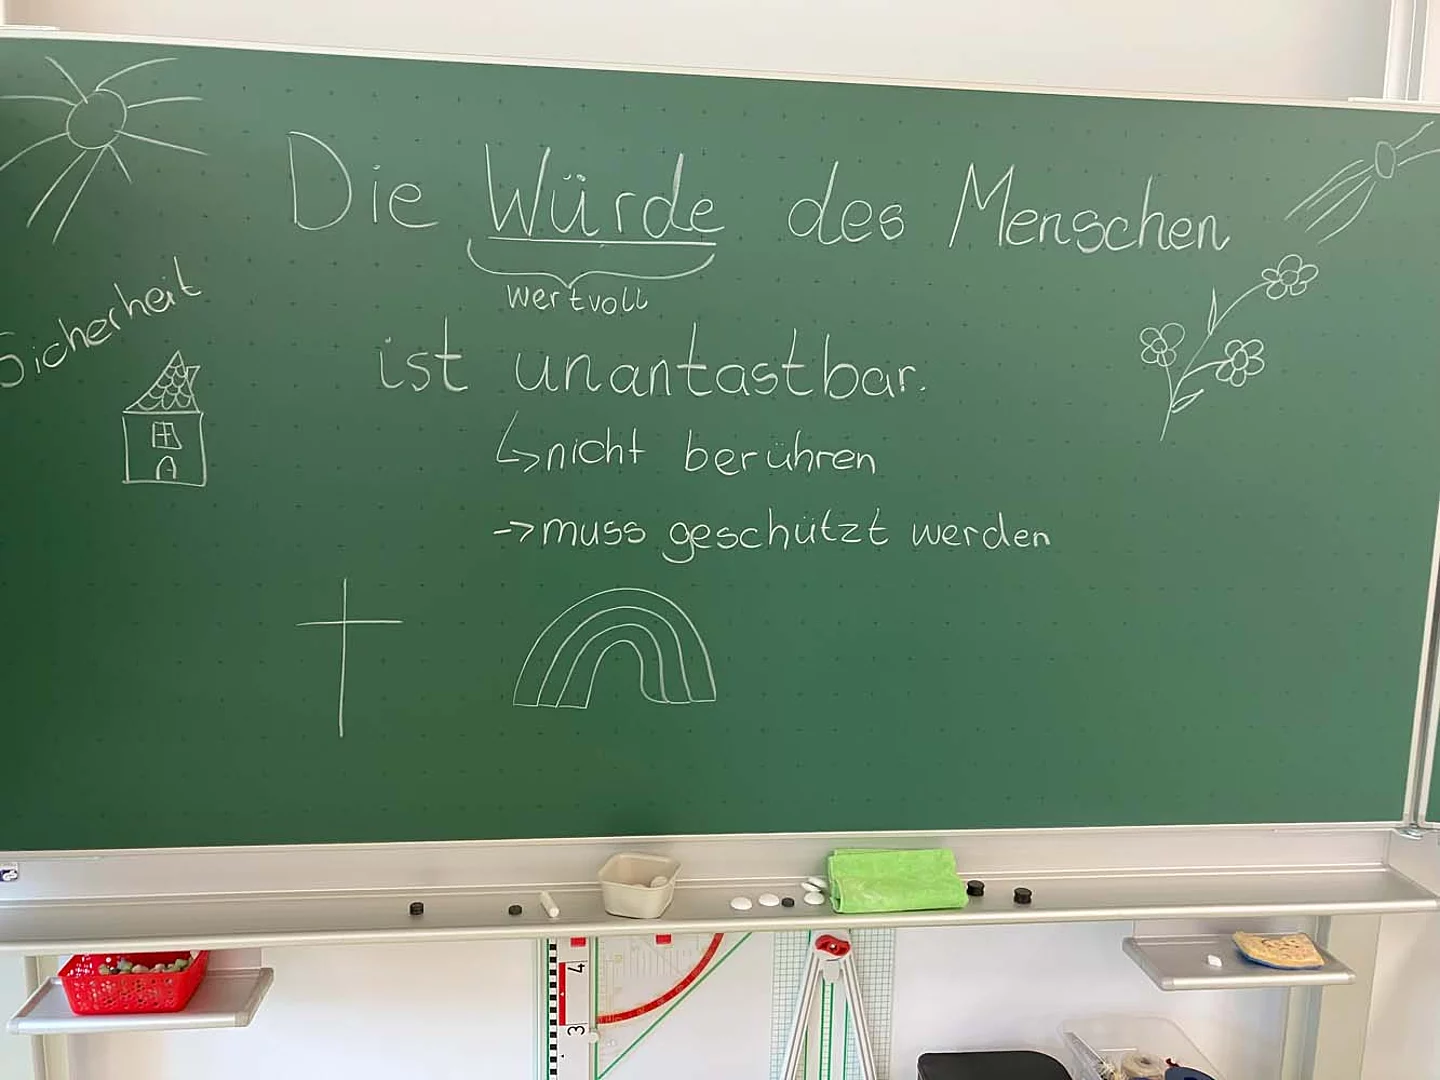 Die Würde des Menschen
wertvoll
Sicherheit
ist unantastbar.
↳ nicht berühren
→ muss geschützt werden
4
3